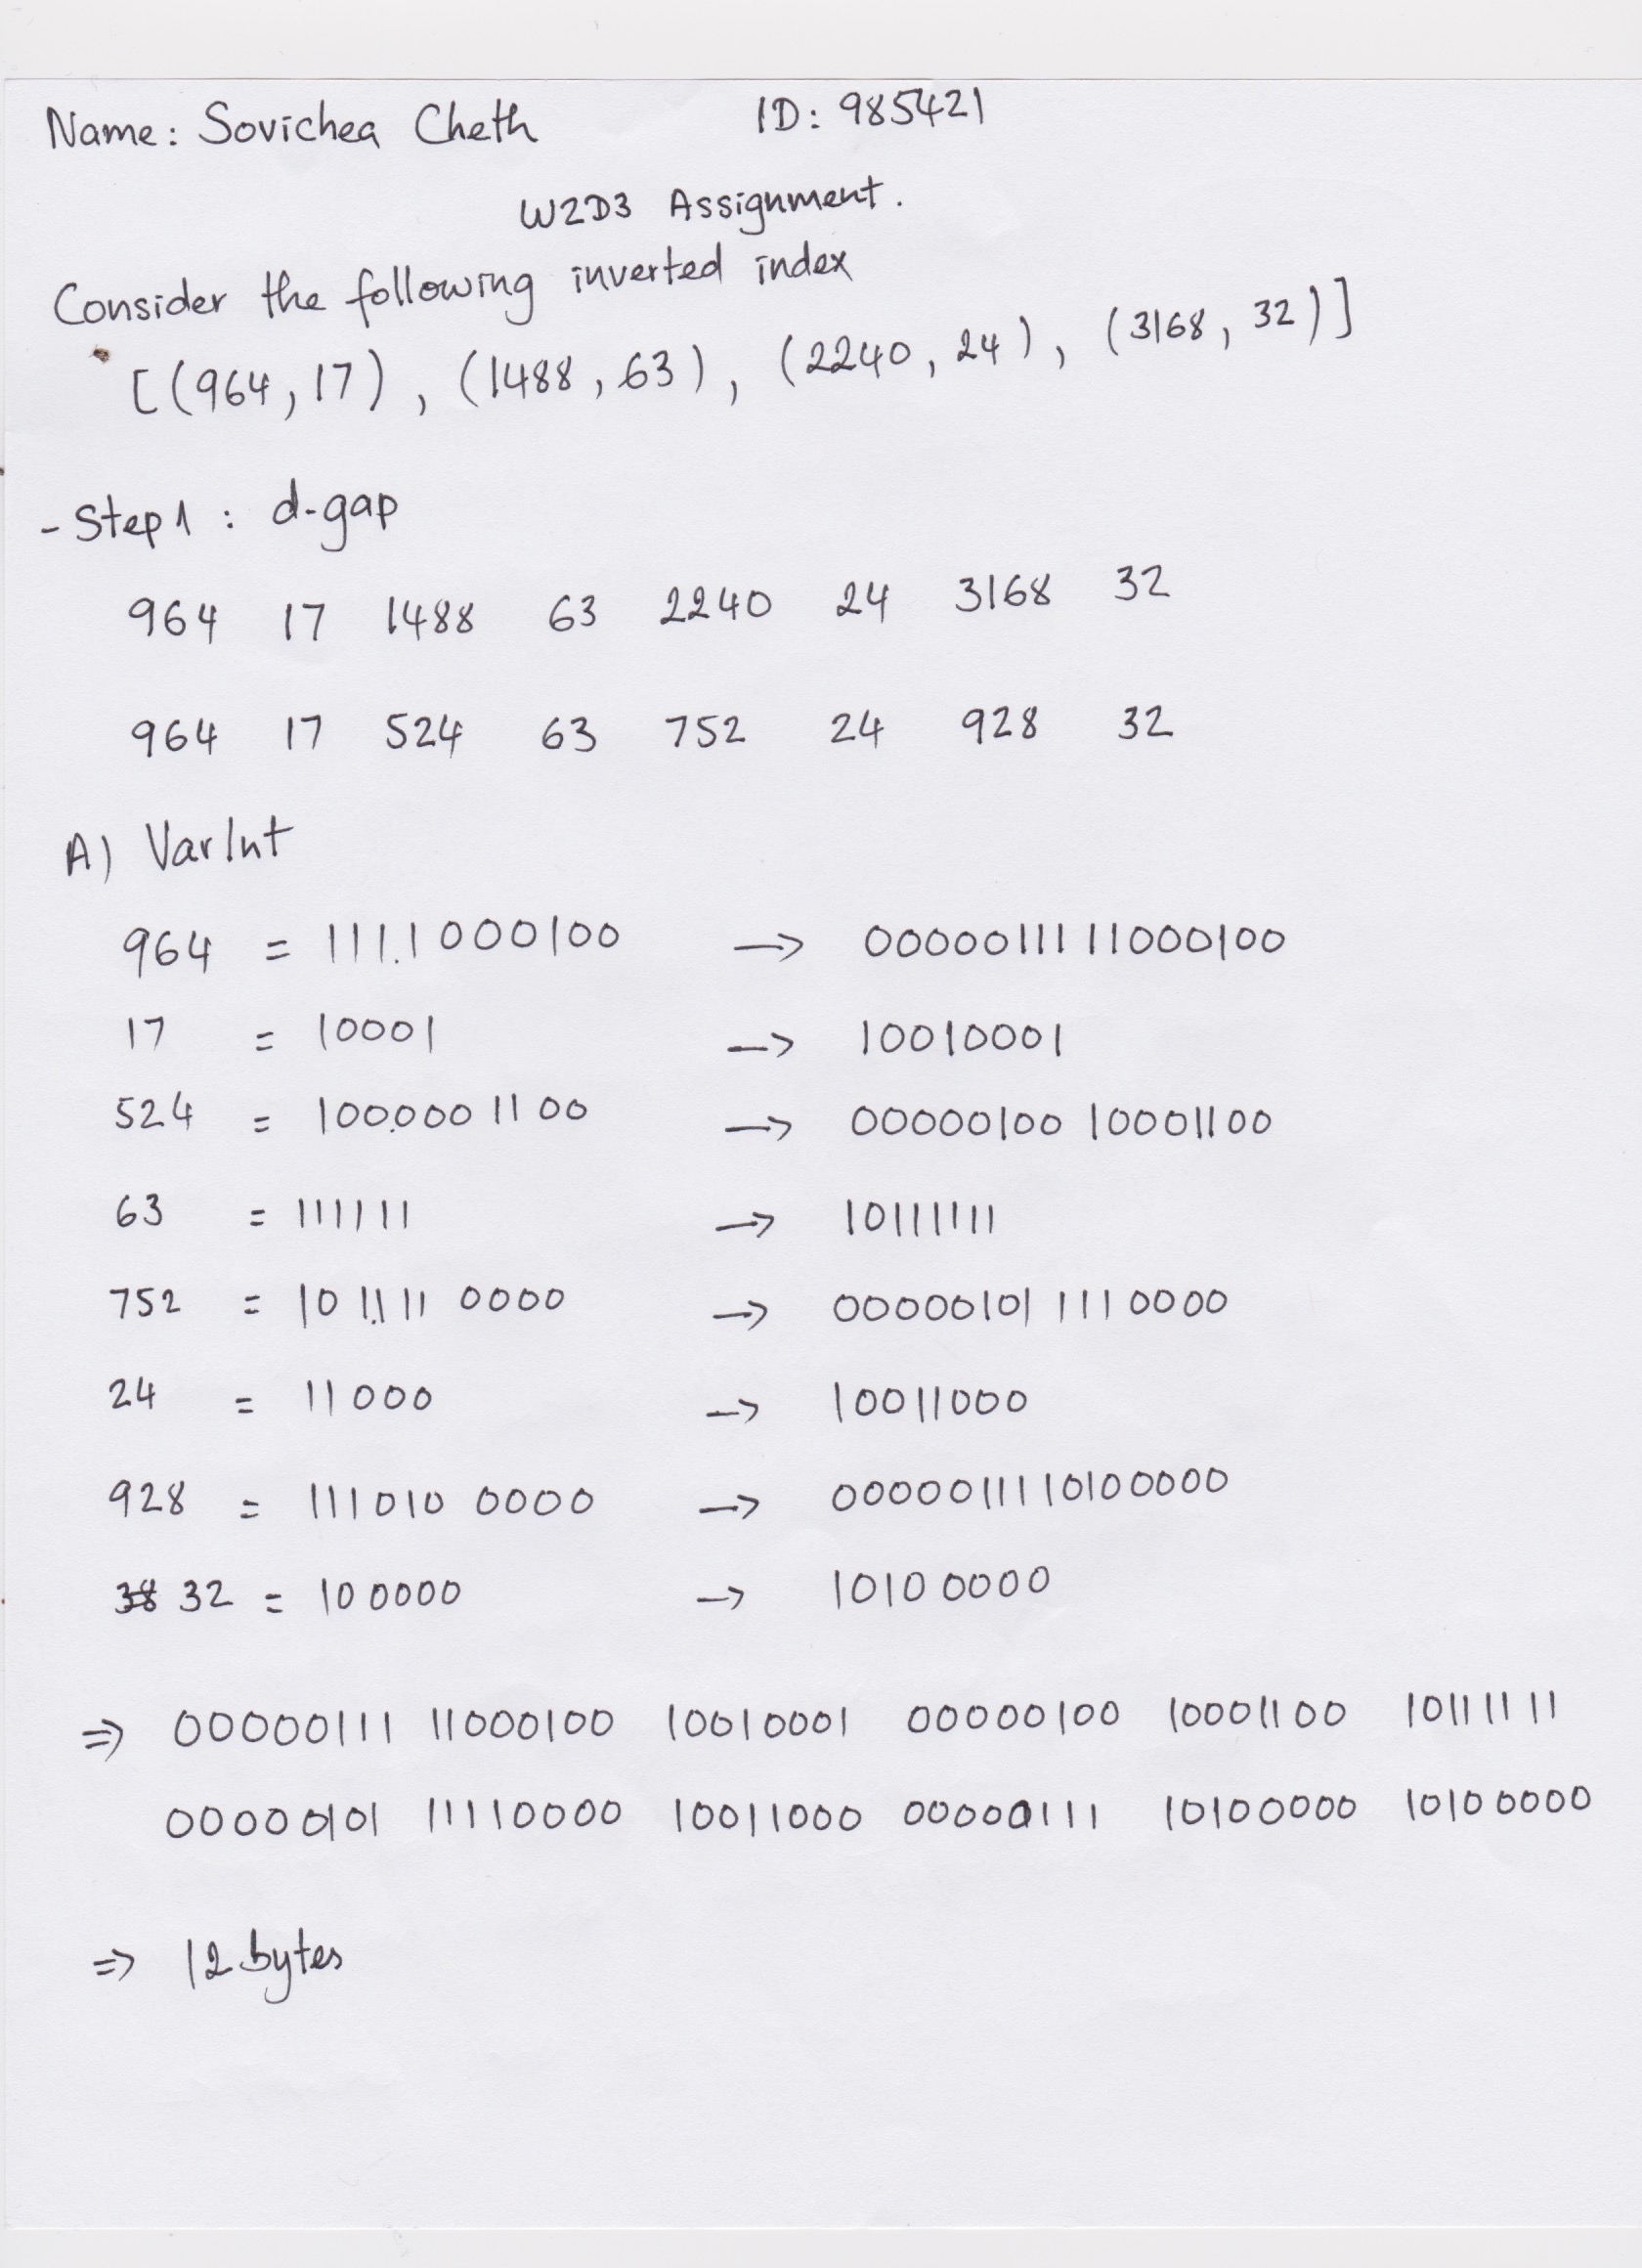 Name: Sovichea Cheth ID: 985421
W2D3 Assignment.
Consider the following inverted index
[(964, 17), (1488, 63), (2240, 24), (3168, 32)]
- Step 1 : d-gap
964 17 1488 63 2240 24 3168 32
964 17 524 63 752 24 928 32
A) VarInt
964 = 111.1000100 → 00000111 11000100
17 = 10001 → 10010001
524 = 100.0001100 → 00000100 10001100
63 = 111111 → 10111111
752 = 101.111 0000 → 00000101 1110000
24 = 11000 → 10011000
928 = 111010 0000 → 0000011110100000
38 32 = 100000 → 10100000
⇒ 00000111 11000100 10010001 00000100 10001100 10111111
00000101 11110000 10011000 00000111 10100000 10100000
⇒ 12 bytes